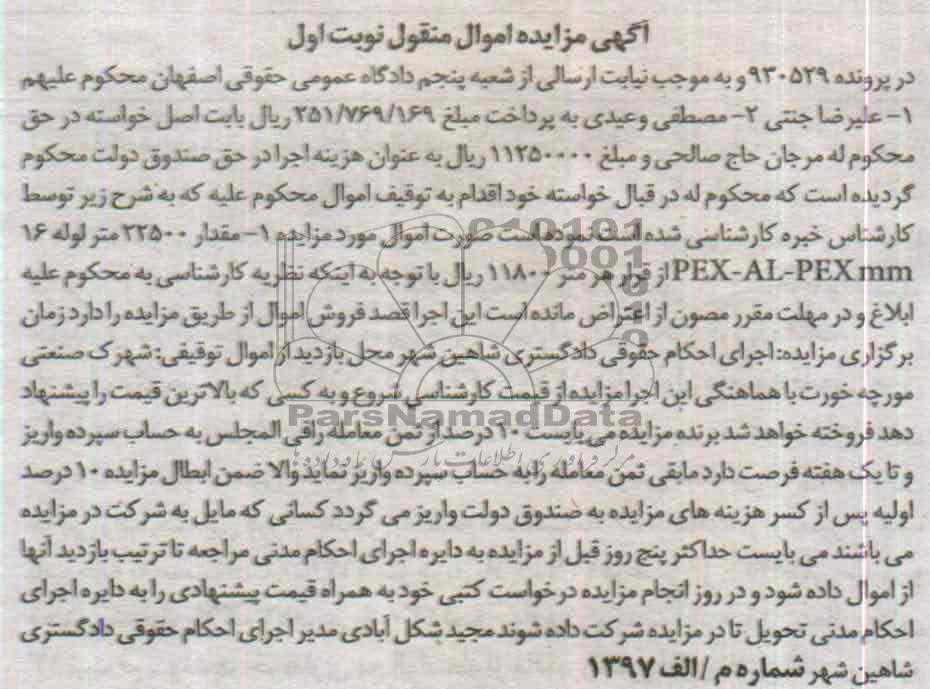 آگهی مزایده اموال منقول نوبت اول
در پرونده ۹۳۰۵۲۹ و به موجب نیابت ارسالی از شعبه پنجم دادگاه عمومی حقوقی اصفهان محکوم علیهم
۱- علیرضا جنتی ۲- مصطفی وعیدی به پرداخت مبلغ ۲۵۱/۷۶۹/۱۶۹ ریال بابت اصل خواسته در حق
محکوم له مرجان حاج صالحی و مبلغ ۱۱۲۵۰۰۰۰ ریال به عنوان هزینه اجرا در حق صندوق دولت محکوم
گردیده است که محکوم له در قبال خواسته خود اقدام به توقیف اموال محکوم علیه که به شرح زیر توسط
کارشناس خبره کارشناسی شده است نموده است صورت اموال مورد مزایده ۱- مقدار ۲۲۵۰۰ متر لوله ۱۶
PEX-AL-PEX mm از قرار هر متر ۱۱۸۰۰ ریال با توجه به اینکه نظریه کارشناسی به محکوم علیه
ابلاغ و در مهلت مقرر مصون از اعتراض مانده است این اجرا قصد فروش اموال از طریق مزایده را دارد زمان
برگزاری مزایده: اجرای احکام حقوقی دادگستری شاهین شهر محل بازدید از اموال توقیفی: شهرک صنعتی
مورچه خورت با هماهنگی این اجرا مزایده از قیمت کارشناسی شروع و به کسی که بالاترین قیمت را پیشنهاد
دهد فروخته خواهد شد برنده مزایده می بایست ۱۰ درصد از ثمن معامله را فی المجلس به حساب سپرده واریز
و تا یک هفته فرصت دارد مابقی ثمن معامله را به حساب سپرده واریز نماید والا ضمن ابطال مزایده ۱۰ درصد
اولیه پس از کسر هزینه های مزایده به صندوق دولت واریز می گردد کسانی که مایل به شرکت در مزایده
می باشند می بایست حداکثر پنج روز قبل از مزایده به دایره اجرای احکام مدنی مراجعه تا ترتیب بازدید آنها
از اموال داده شود و در روز انجام مزایده درخواست کتبی خود به همراه قیمت پیشنهادی را به دایره اجرای
احکام مدنی تحویل تا در مزایده شرکت داده شوند مجید شکل آبادی مدیر اجرای احکام حقوقی دادگستری
شاهین شهر شماره م /الف ۱۳۹۷
ParsNamadData